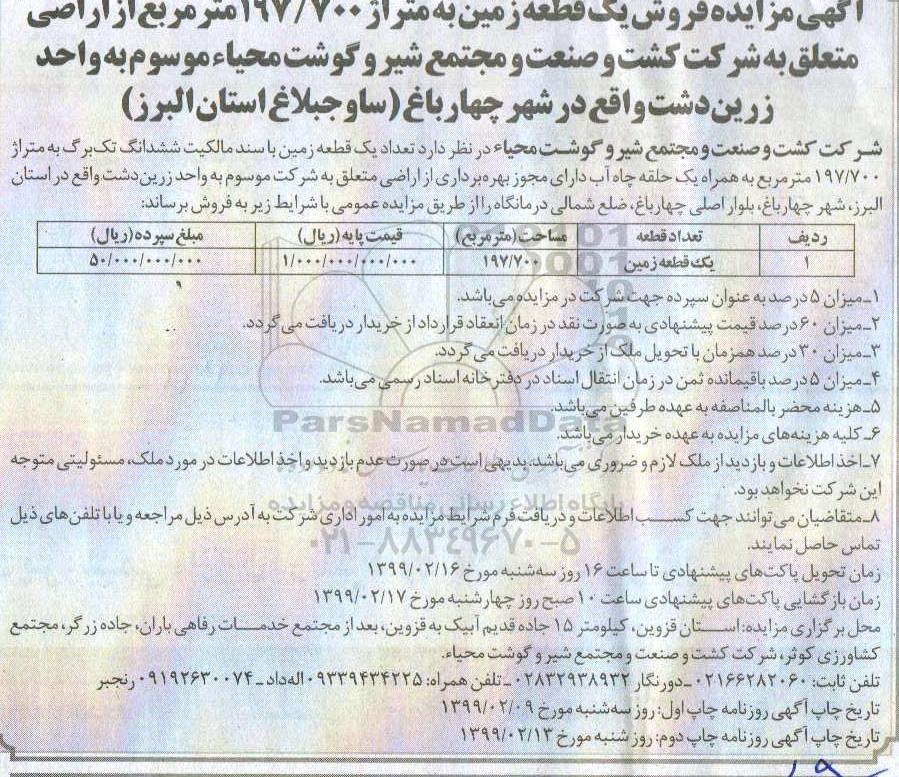 آگهی مزایده فروش یک قطعه زمین به متراژ ۱۹۷/۷۰۰ متر مربع از اراضی
متعلق به شرکت کشت و صنعت و مجتمع شیر و گوشت محیاء موسوم به واحد
زرین دشت واقع در شهر چهارباغ (ساوجبلاغ استان البرز)
شرکت کشت و صنعت و مجتمع شیر و گوشت محیاء در نظر دارد تعداد یک قطعه زمین با سند مالکیت ششدانگ تک‌برگ به متراژ
۱۹۷/۷۰۰ متر مربع به همراه یک حلقه چاه آب دارای مجوز بهره‌برداری از اراضی متعلق به شرکت موسوم به واحد زرین دشت واقع در استان
البرز، شهر چهارباغ، بلوار اصلی چهارباغ، ضلع شمالی درمانگاه را از طریق مزایده عمومی با شرایط زیر به فروش برساند:
ردیف تعداد قطعه مساحت (متر مربع) قیمت پایه (ریال) مبلغ سپرده (ریال)
۱ یک قطعه زمین ۱۹۷/۷۰۰ ۱/۰۰۰/۰۰۰/۰۰۰/۰۰۰ ۵۰/۰۰۰/۰۰۰/۰۰۰
۱ـ میزان ۵ درصد به عنوان سپرده جهت شرکت در مزایده می‌باشد.
۲ـ میزان ۶۰ درصد قیمت پیشنهادی به صورت نقد در زمان انعقاد قرارداد از خریدار دریافت می گردد.
۳ـ میزان ۳۰ درصد همزمان با تحویل ملک از خریدار دریافت می گردد.
۴ـ میزان ۵ درصد باقیمانده ثمن در زمان انتقال اسناد در دفترخانه اسناد رسمی می‌باشد.
۵ـ هزینه محضر بالمناصفه به عهده طرفین می‌باشد.
۶ـ کلیه هزینه‌های مزایده به عهده خریدار می‌باشد.
ParsNamadData
۷ـ اخذ اطلاعات و بازدید از ملک لازم و ضروری می‌باشد. بدیهی است در صورت عدم بازدید و اخذ اطلاعات در مورد ملک، مسئولیتی متوجه
این شرکت نخواهد بود.
پایگاه اطلاع رسانی مناقصه و مزایده
۸ـ متقاضیان می‌توانند جهت کسب اطلاعات و دریافت فرم شرایط مزایده به امور اداری شرکت به آدرس ذیل مراجعه و یا با تلفن‌های ذیل
تماس حاصل نمایند.
۰۲۱-۸۸۳۴۹۶۷۰-۵
زمان تحویل پاکت‌های پیشنهادی تا ساعت ۱۶ روز سه‌شنبه مورخ ۱۳۹۹/۰۲/۱۶
زمان بازگشایی پاکت‌های پیشنهادی ساعت ۱۰ صبح روز چهارشنبه مورخ ۱۳۹۹/۰۲/۱۷
محل برگزاری مزایده: استان قزوین، کیلومتر ۱۵ جاده قدیم آبیک به قزوین، بعد از مجتمع خدمات رفاهی باران، جاده زرگر، مجتمع
کشاورزی کوثر، شرکت کشت و صنعت و مجتمع شیر و گوشت محیاء.
تلفن ثابت: ۰۲۱۶۶۲۸۲۰۶۰ ـ دورنگار ۰۲۸۳۲۹۳۸۹۳۲ ـ تلفن همراه: ۰۹۳۳۹۴۳۴۲۲۵ اله‌داد ـ ۰۹۱۹۲۶۳۰۰۷۴ رنجبر
تاریخ چاپ آگهی روزنامه چاپ اول: روز سه‌شنبه مورخ ۱۳۹۹/۰۲/۰۹
تاریخ چاپ آگهی روزنامه چاپ دوم: روز شنبه مورخ ۱۳۹۹/۰۲/۱۳